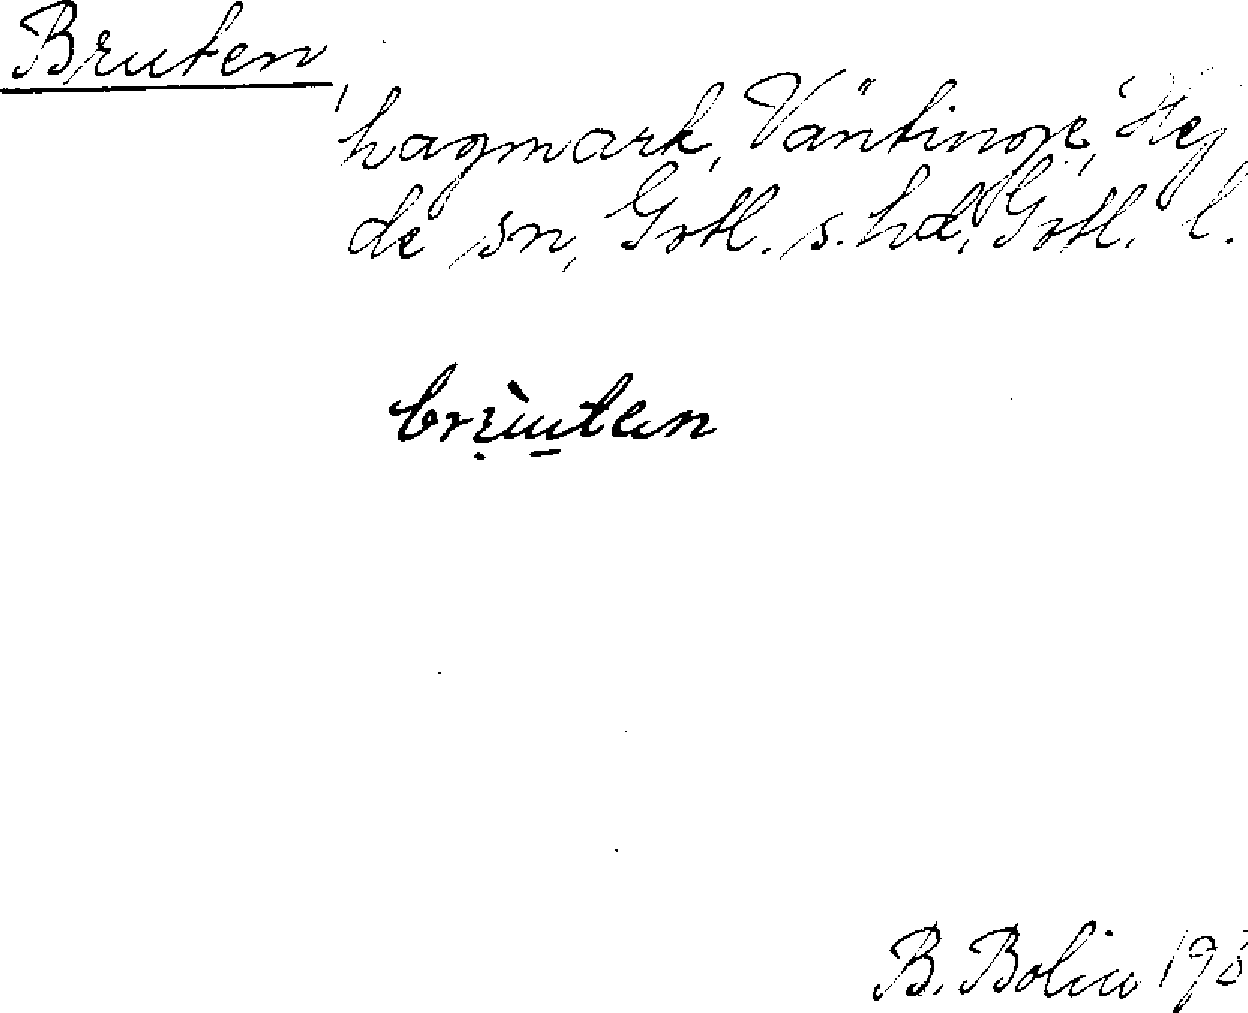 Bruten,
hagmark, Väntinge, Hej
de sn, Gotl. s. hd, Gotl. l.
B. Bolin 193